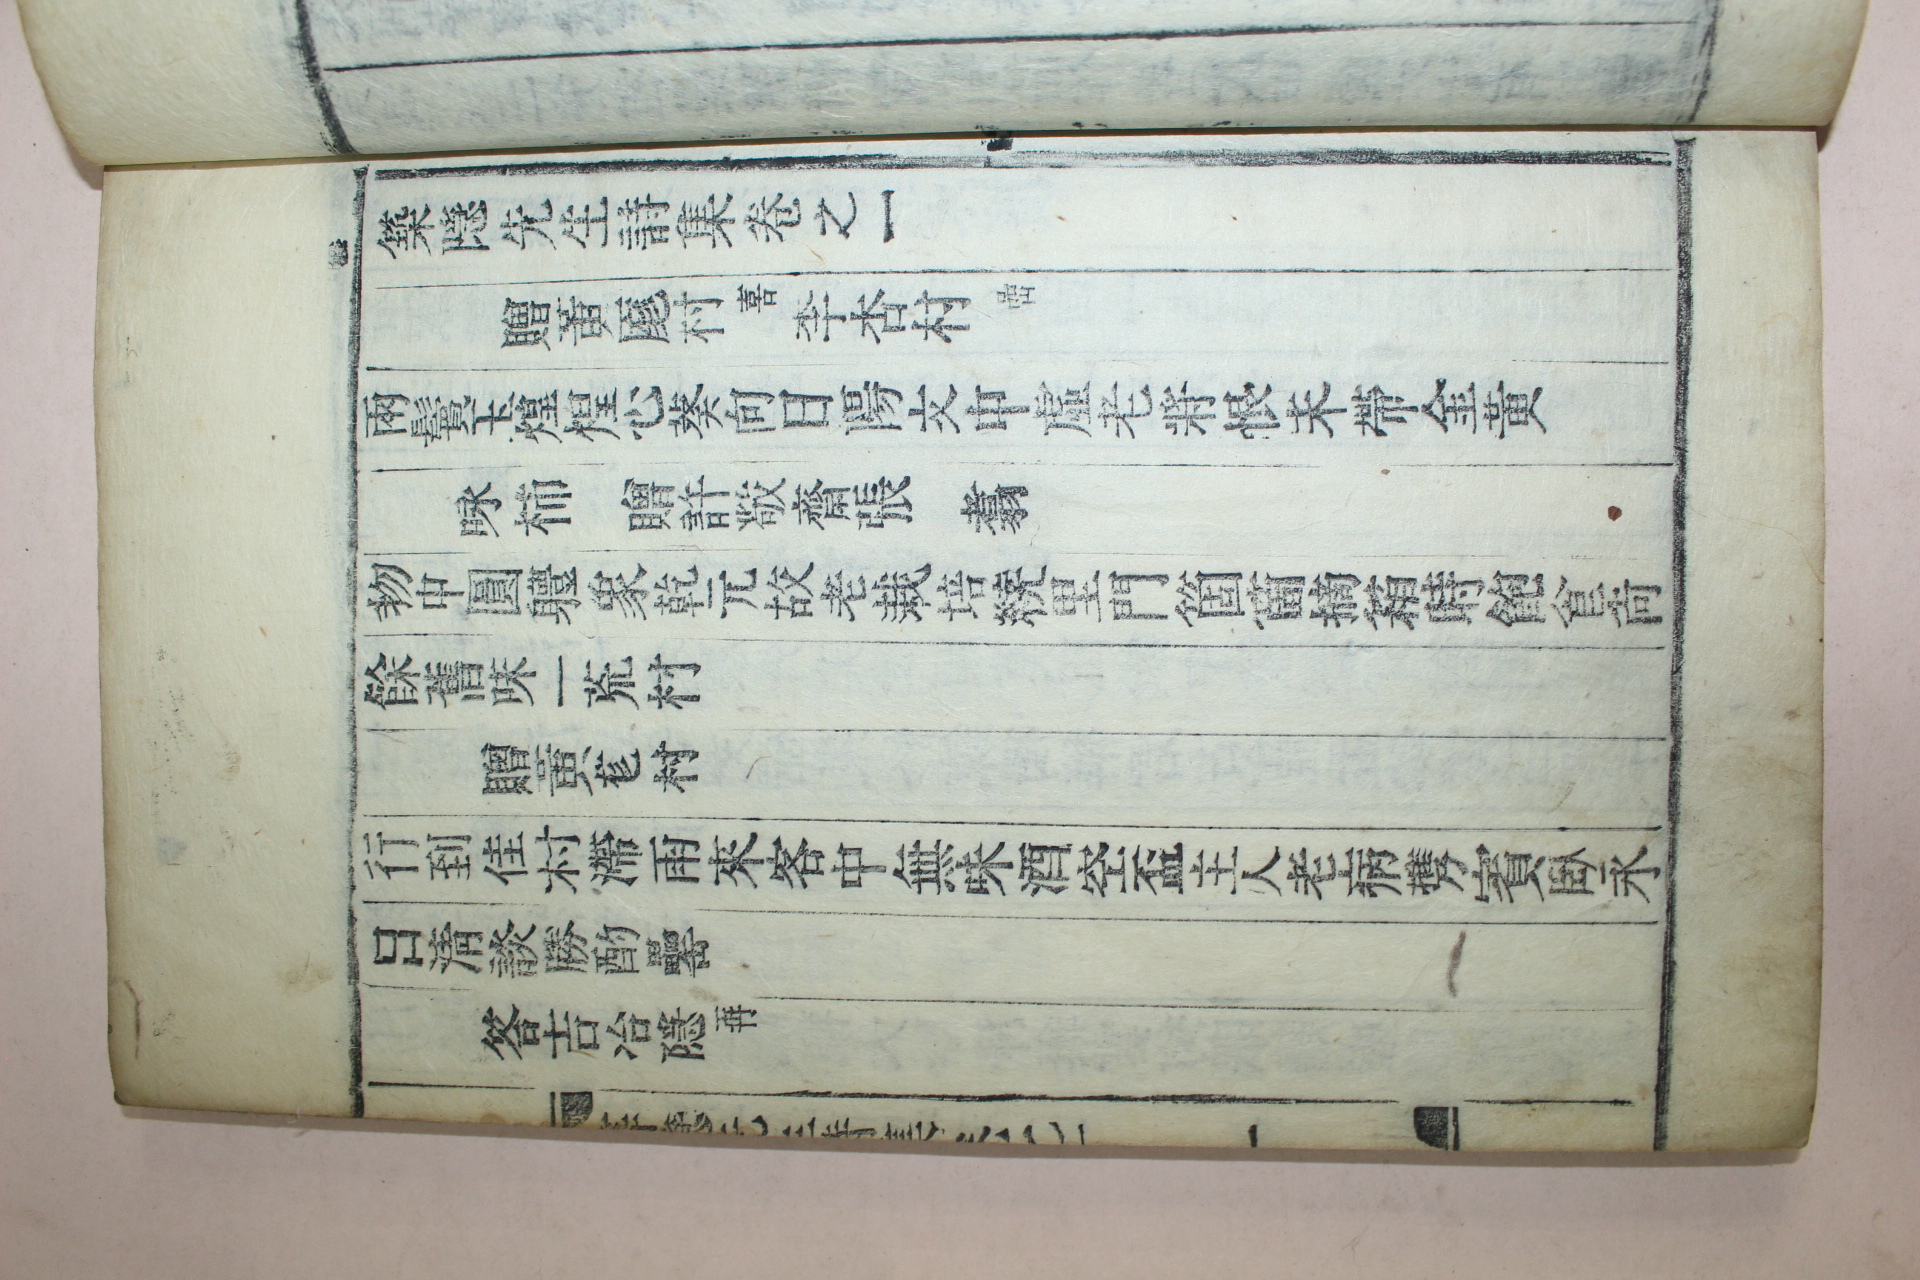 築隱先生詩集卷之一
贈黃厖村 喜 李杏村
兩鬢玉煌煌心葵向日陽文中虛老將恨未帶金黃
咏柿 贈許敬齋張 翥
物中圓軆象乾元故老栽培繞里門箇箇摘箱時飽食尚
餘舊味一荒村
贈黃厖村
行到佳村滯雨來客中無味酒空盃主人老病携賓臥永
日淸談勝酌罍
答吉冶隱 再
築隱先生詩集卷之一
一